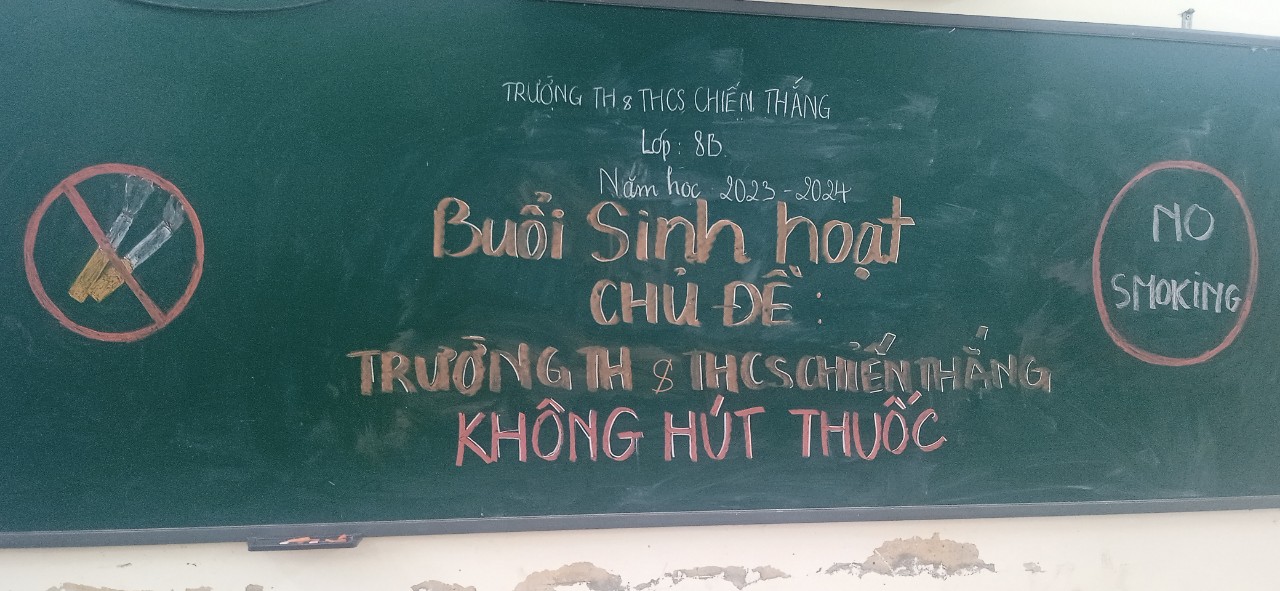 TRƯỜNG TH & THCS CHIẾN THẮNG
Lớp: 8B.
Năm học 2023-2024
Buổi Sinh hoạt
CHỦ ĐỀ:
TRƯỜNG TH & THCS CHIẾN THẮNG
KHÔNG HÚT THUỐC
NO
SMOKING